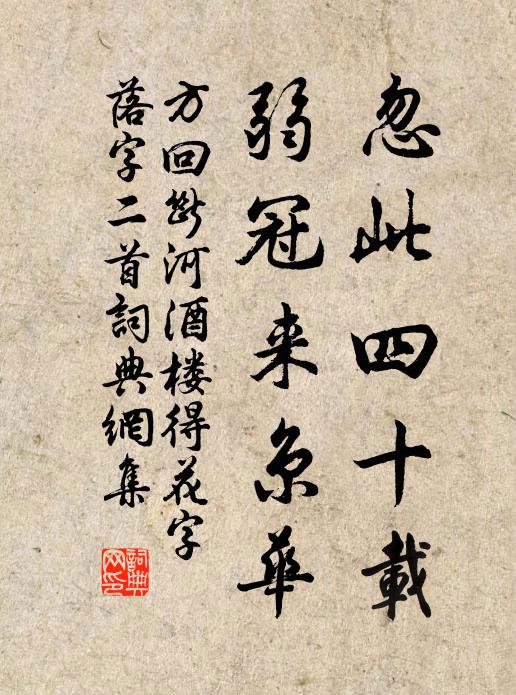 忽此四十載
弱冠来京華
方回断河酒楼得花字
落字二首詞典網集
詞典网印